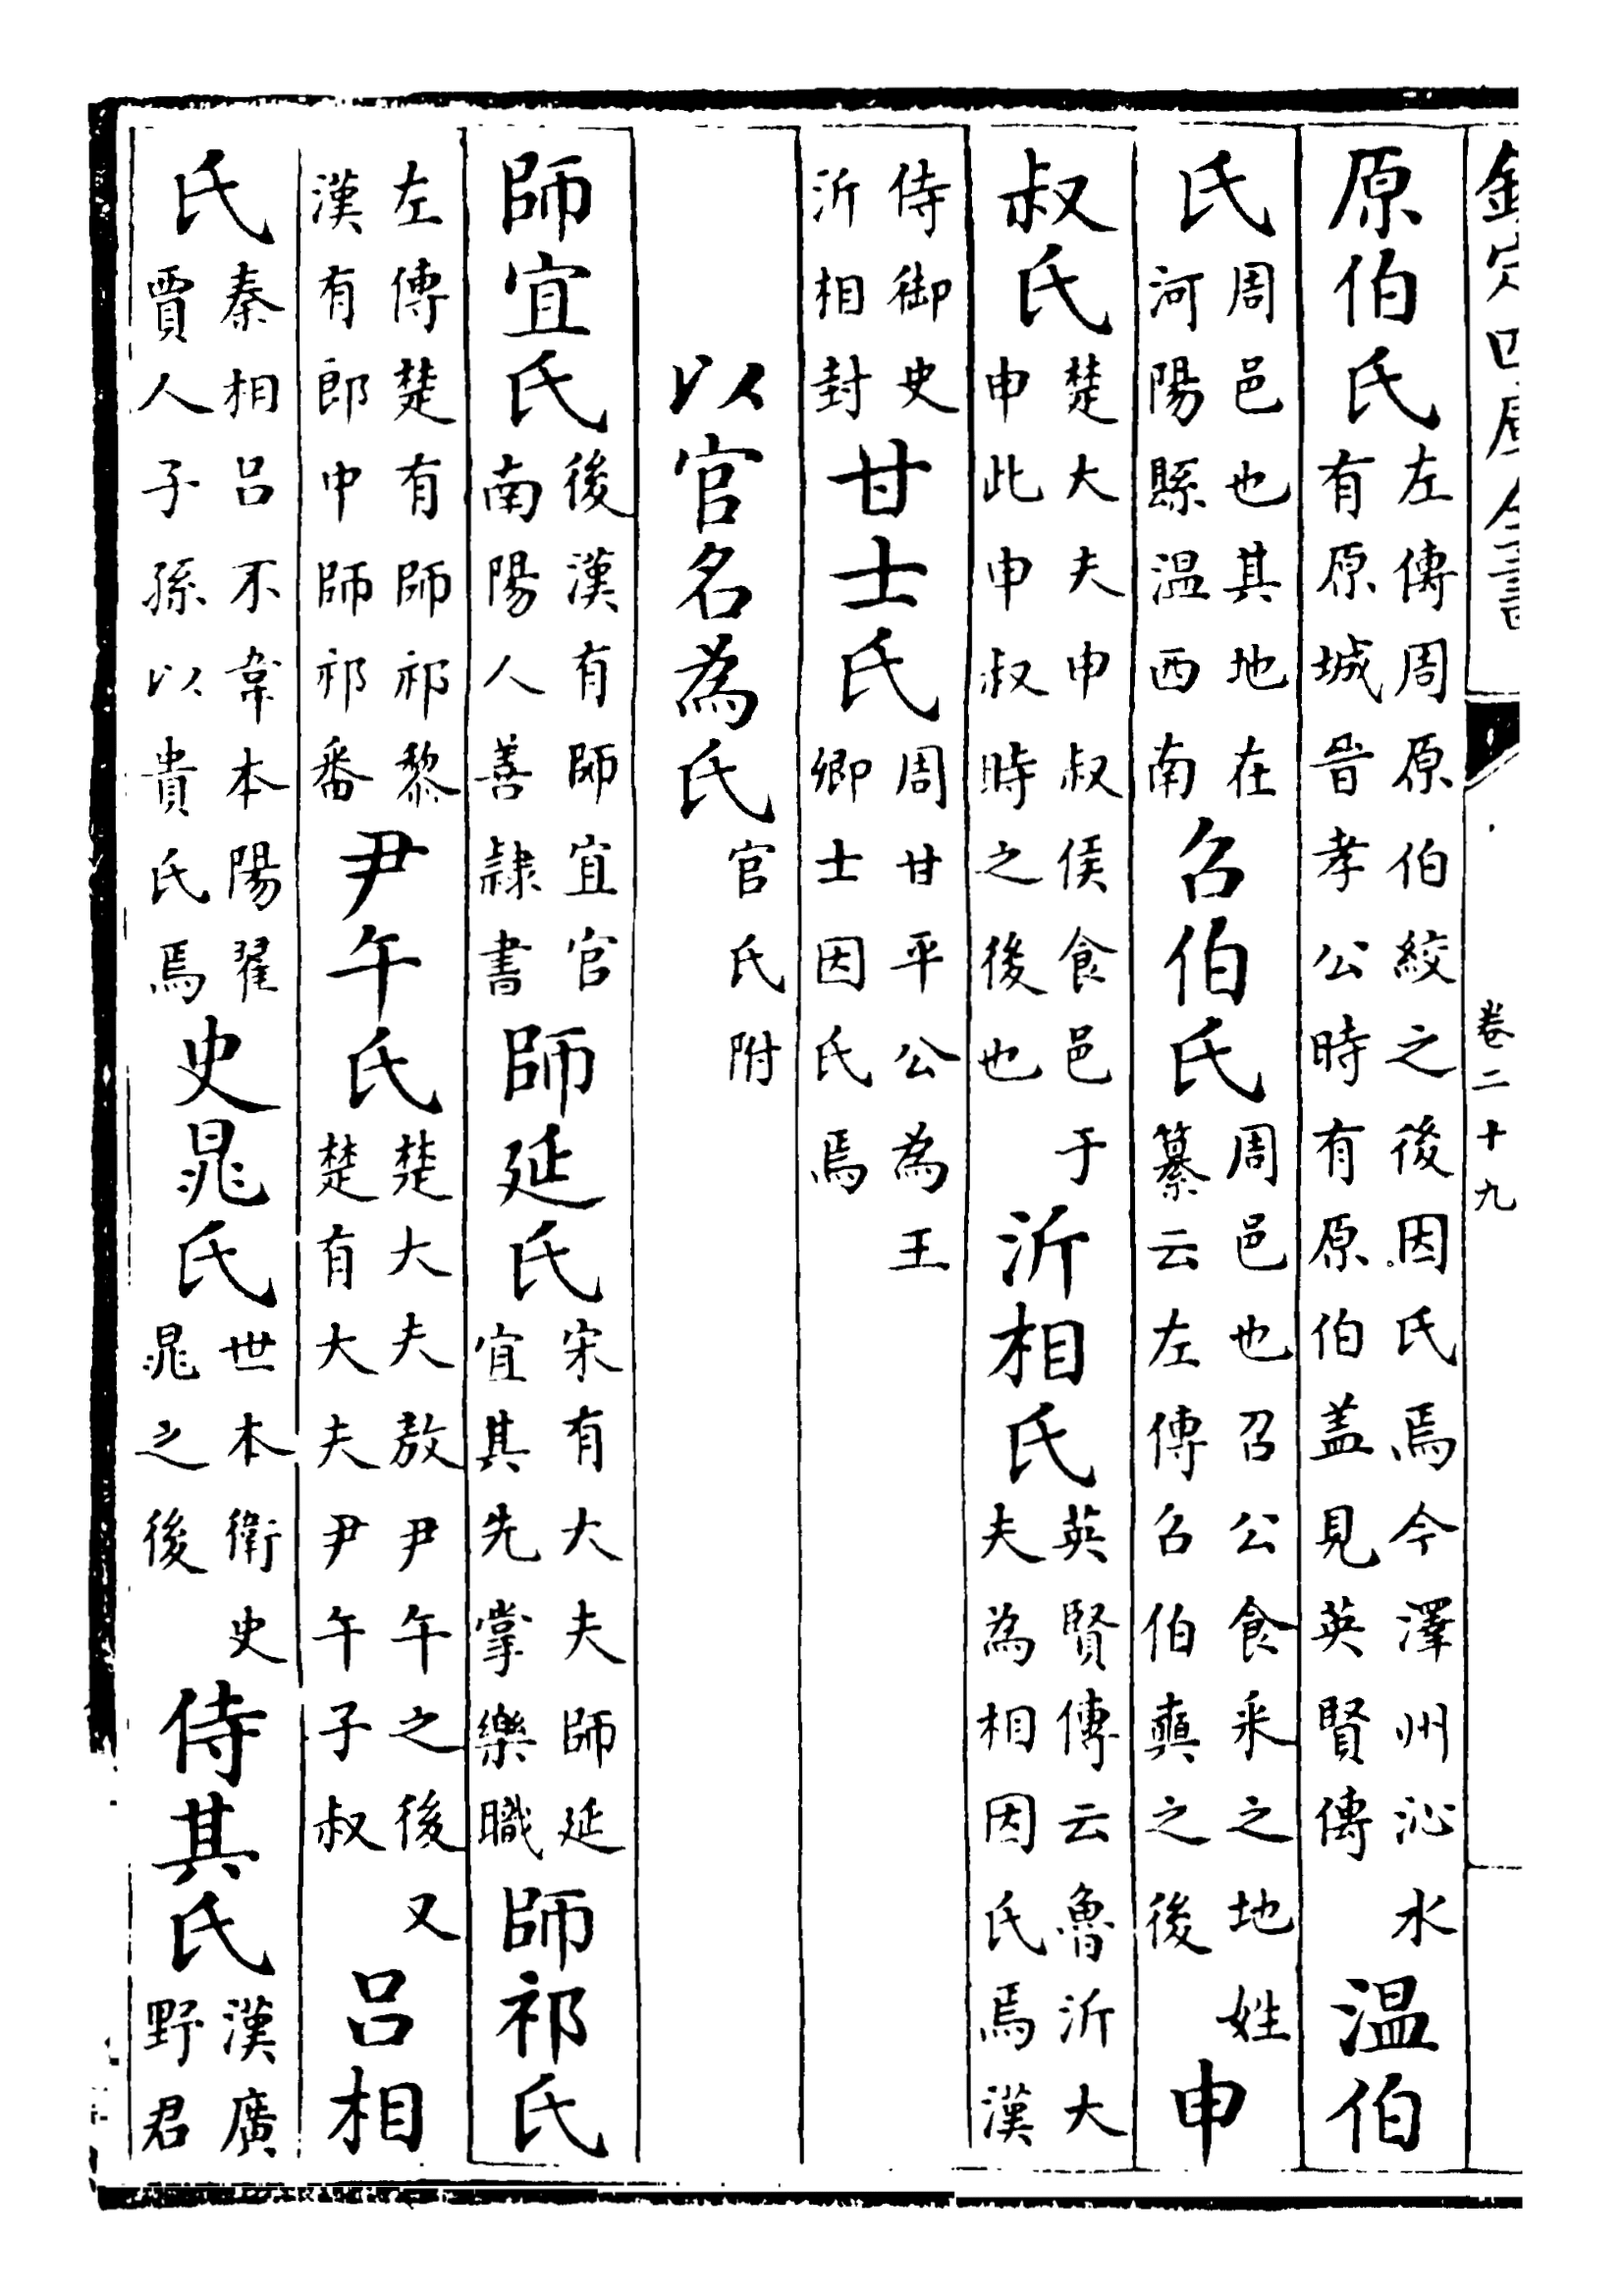 欽定四庫全書
卷二十九
原伯氏左傳周原伯絞之後因氏焉今澤州沁水有原城晋孝公時有原伯蓋見英賢傳温伯
氏周邑也其地在河陽縣温西南召伯氏周邑也召公食采之地姓纂云左傳召伯奭之後申
叔氏楚大夫申叔侯食邑于申此申叔時之後也沂相氏英賢傳云魯沂大夫為相因氏焉漢
侍御史沂相封甘士氏周甘平公為王卿士因氏焉
以官名為氏官氏附
師宜氏後漢有師宜官南陽人善隷書師延氏宋有大夫師延宜其先掌樂職師祁氏
左傳楚有師祁黎漢有郎中師祁番尹午氏楚大夫敖尹午之後又楚有大夫尹午子叔吕相
氏秦相呂不韋本陽翟賈人子孫以貴氏焉史晁氏世本衛史晁之後侍其氏漢廣野君